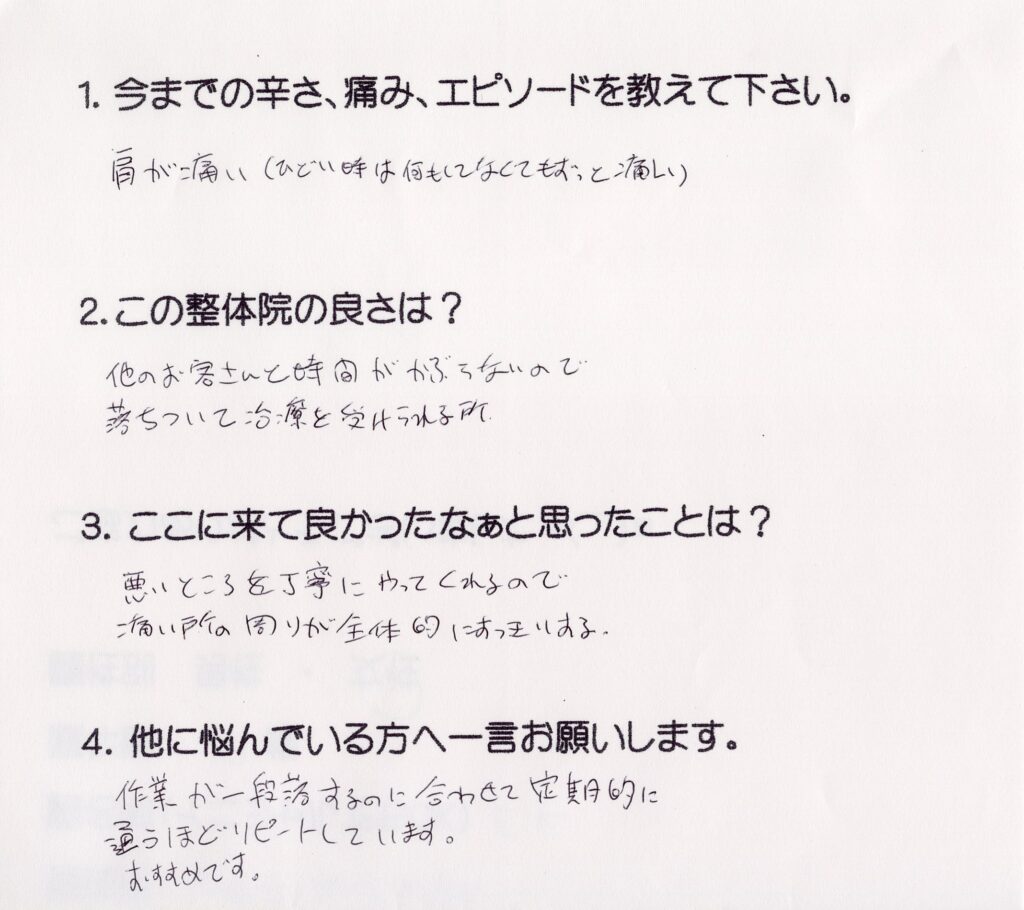 1. 今までの辛さ、痛み、エピソードを教えて下さい。
肩が痛い (ひどい時は何もしてなくてもずっと痛い)
2. この整体院の良さは？
他のお客さんと時間がかぶらないので
落ちついて治療を受けられる所
3. ここに来て良かったなぁと思ったことは？
悪いところを丁寧にやってくれるので
痛い所の周りが全体的にすっきりする.
4. 他に悩んでいる方へ一言お願いします。
作業が一段落するのに合わせて定期的に
通うほどリピートしています。
おすすめです。